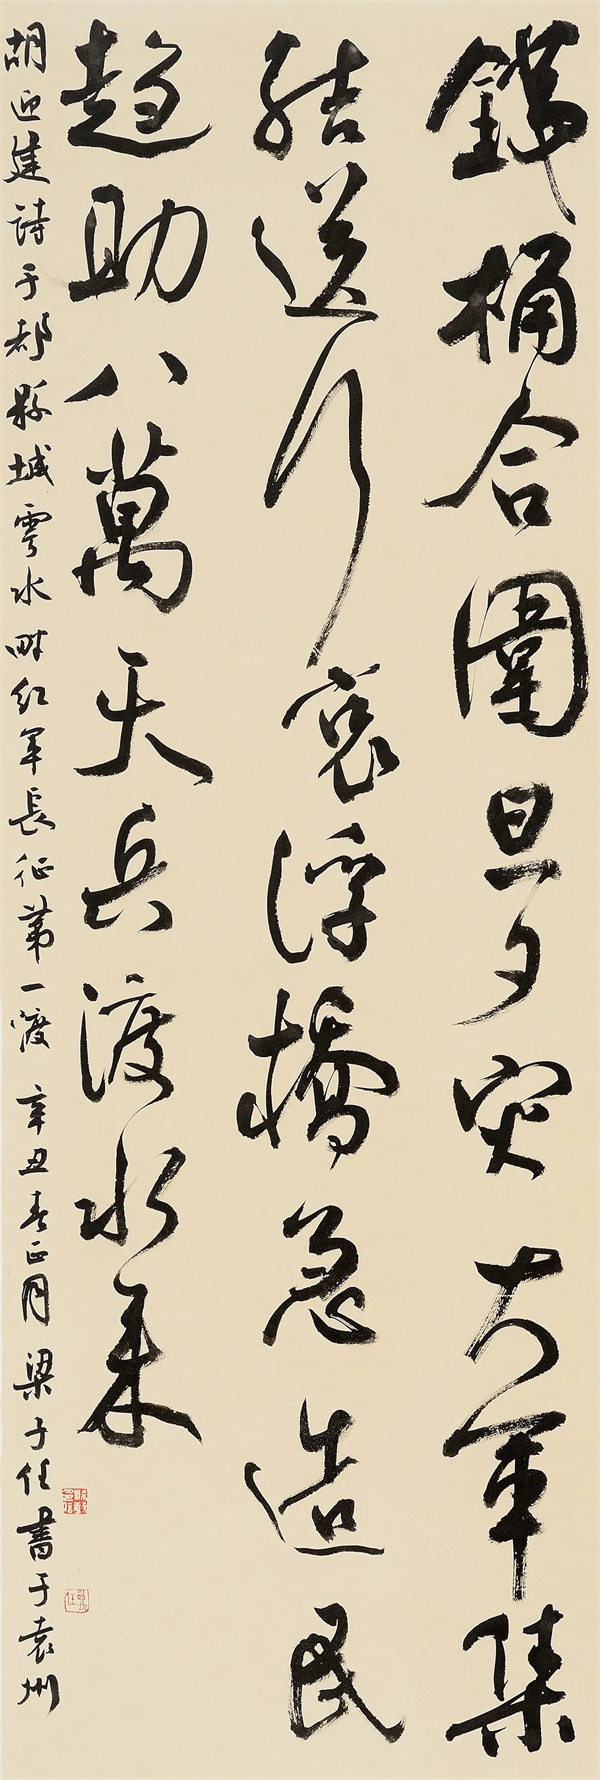 鐵桶合圍旦夕災大軍集
結送行哀浮橋急造民
趋助八萬天兵渡水来
胡迎建詩于都縣城雩水畔红軍長征第一渡 辛丑春正月 梁子任書于袁州